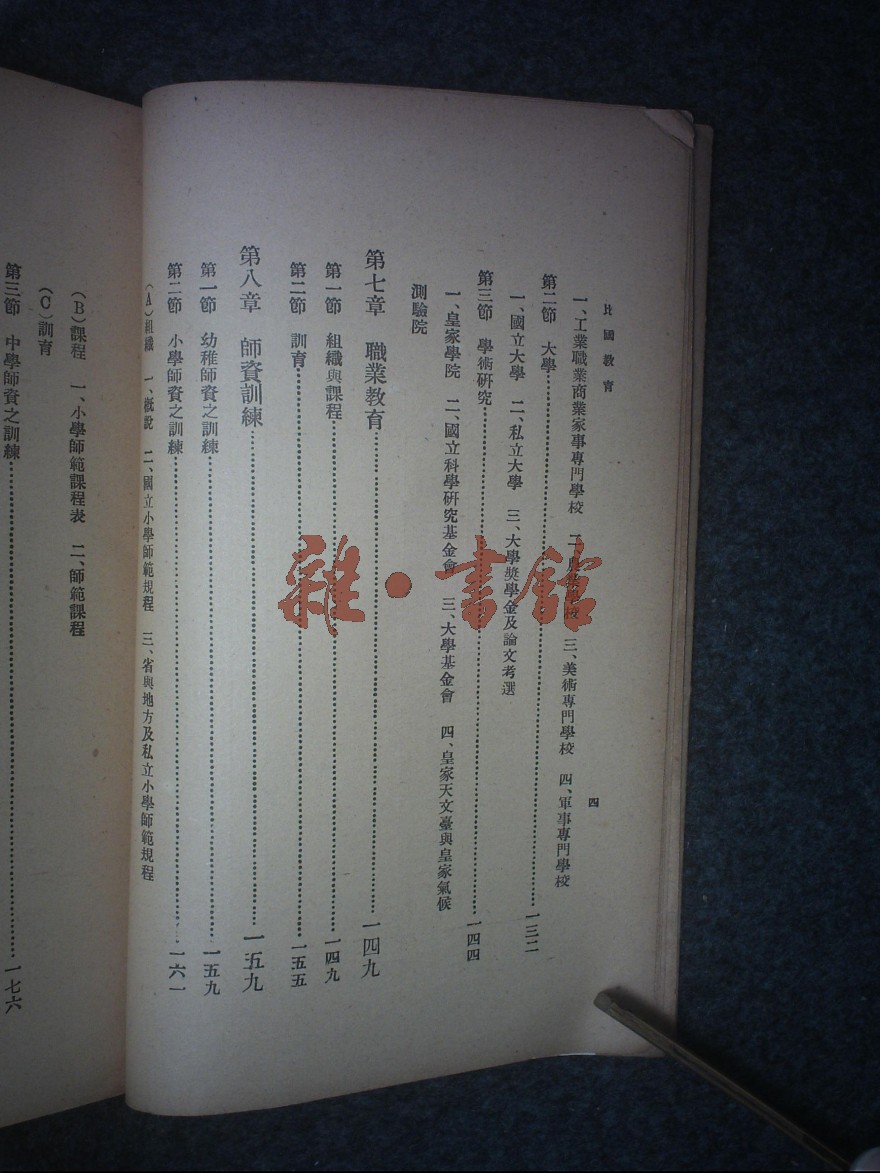 比國教育
四
一、工業職業商業家事專門學校　二、農業學校　三、美術專門學校　四、軍事專門學校
第二節　大學……一三二
一、國立大學　二、私立大學　三、大學獎學金及論文考選
第三節　學術研究……一四四
一、皇家學院　二、國立科學研究基金會　三、大學基金會　四、皇家天文臺與皇家氣候
測驗院
第七章　職業教育……一四九
第一節　組織與課程……一四九
第二節　訓育……一五五
第八章　師資訓練……一五九
第一節　幼稚師資之訓練……一五九
第二節　小學師資之訓練……一六一
（A）組織　一、概說　二、國立小學師範規程　三、省與地方及私立小學師範規程
（B）課程　一、小學師範課程表　二、師範課程
（C）訓育
第三節　中學師資之訓練……一七六
雜·書館